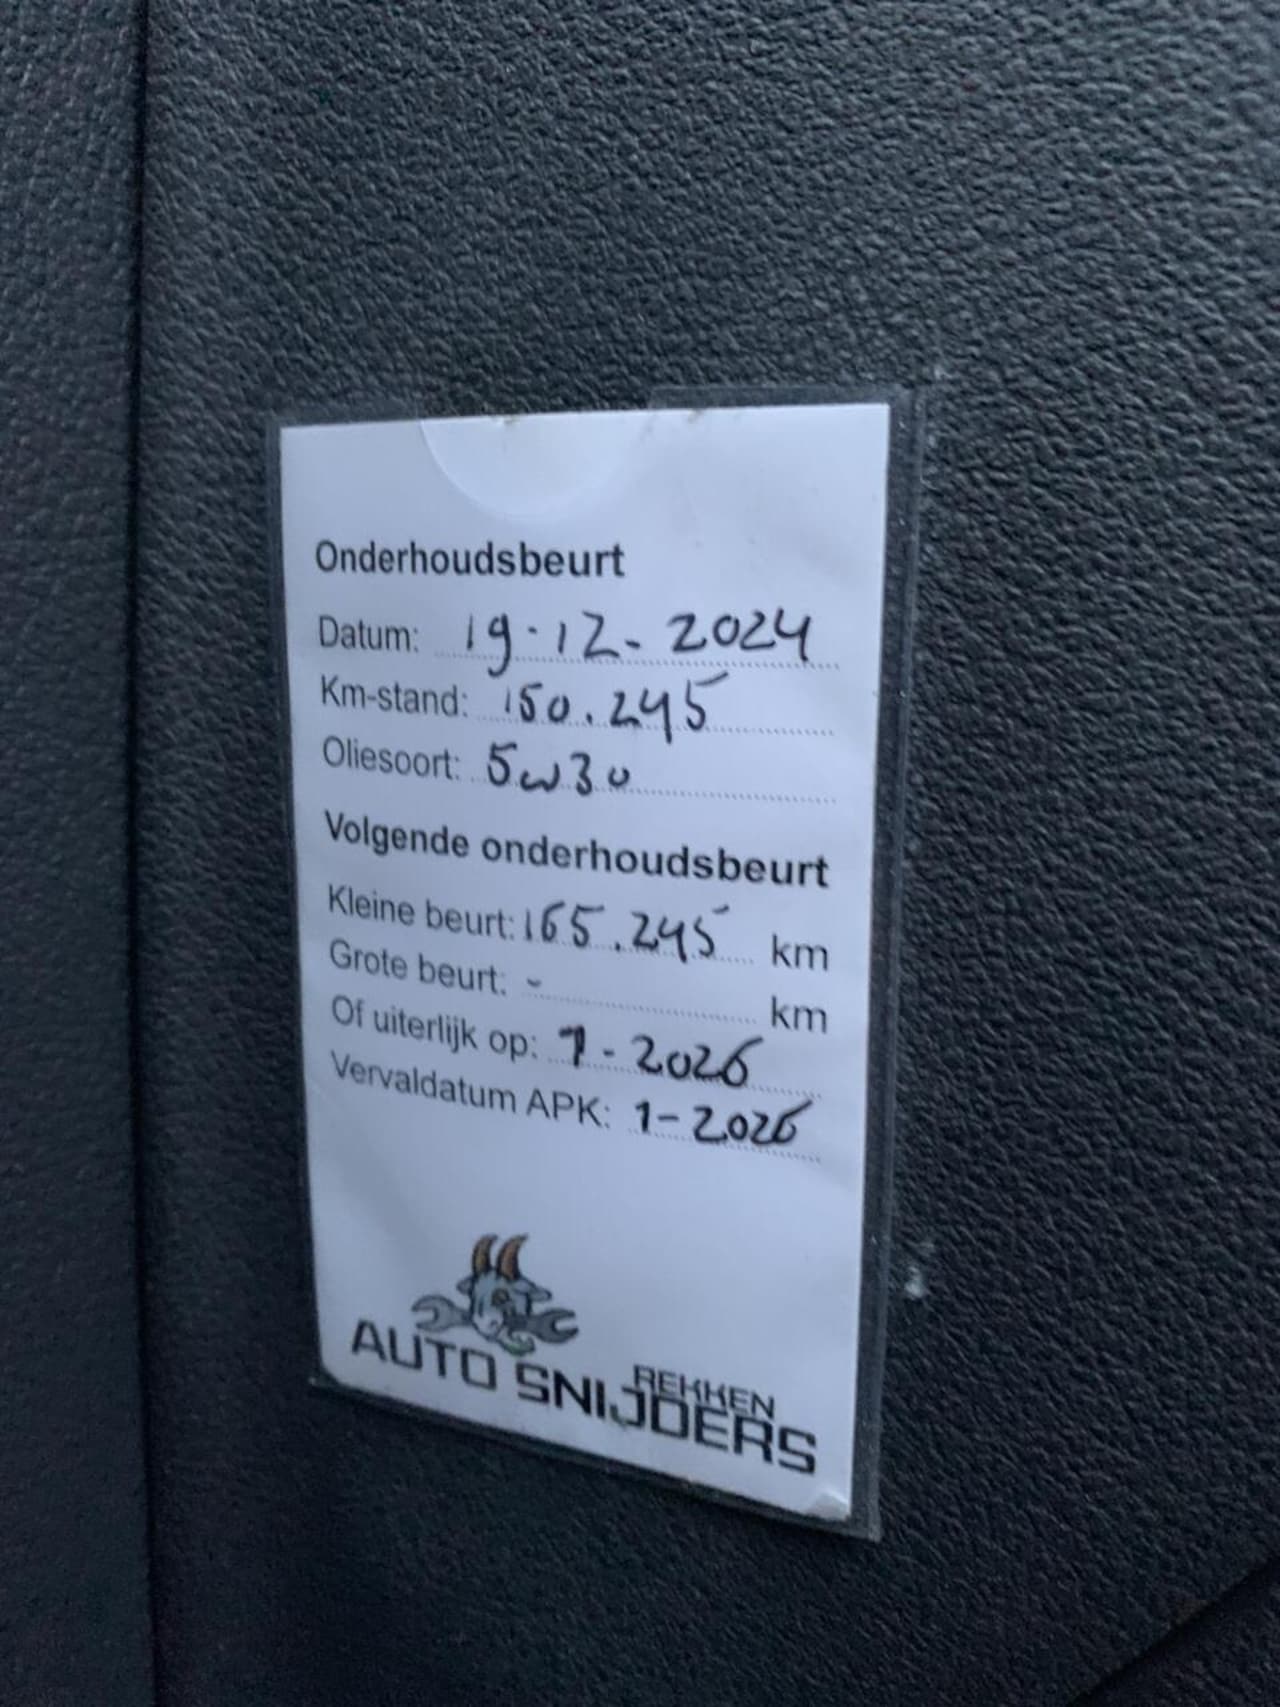 Onderhoudsbeurt
Datum: 19-12-2024
Km-stand: 150.245
Oliesoort: 5w30
Volgende onderhoudsbeurt
Kleine beurt: 165.245 km
Grote beurt: - km
Of uiterlijk op: 1-2026
Vervaldatum APK: 1-2026
REKKEN
AUTO SNIJDERS